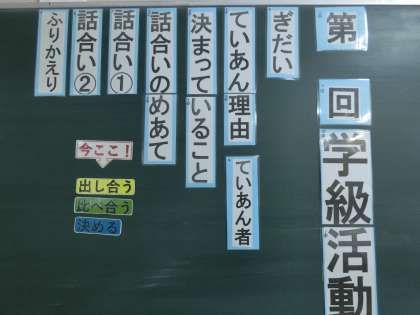 第 回 学級活動
ぎだい
ていあん理由
ていあん者
決まっていること
話合いのめあて
話合い①
話合い②
ふりかえり
今ここ！
出し合う
比べ合う
決める